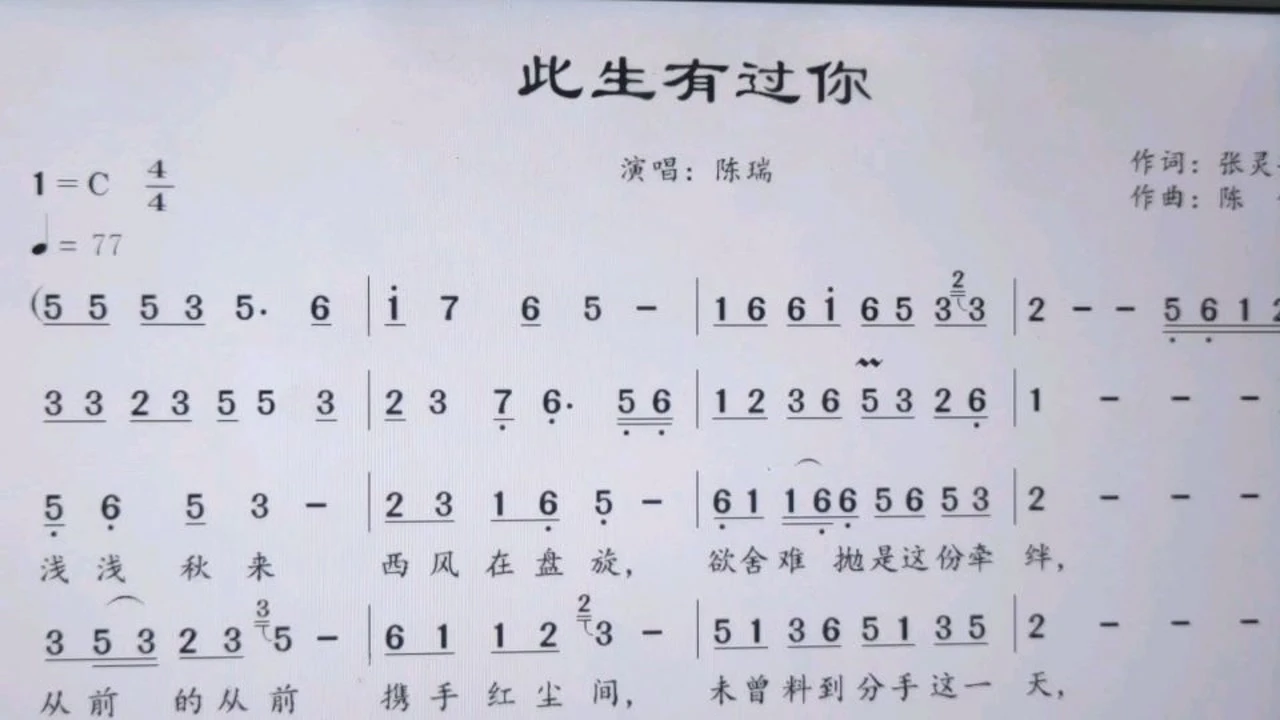 此生有过你
演唱：陈瑞
作词：张灵
作曲：陈
1=C 4/4
♩= 77
(5 5 5 3 5· 6 | i 7 6 5 － | 1 6 6 i 6 5 3 2 3 | 2 － － 5 6 1 2
3 3 2 3 5 5 3 | 2 3 7 6· 5 6 | 1 2 3 6 5 3 2 6 | 1 － － －
5 6 5 3 － | 2 3 1 6 5 － | 6 1 1 6 6 5 6 5 3 | 2 － － －
浅浅 秋来 西风在盘旋， 欲舍难 抛是这份牵 绊，
3 5 3 2 3 3 5 － | 6 1 1 2 2 3 － | 5 1 3 6 5 1 3 5 | 2 － － －
从前 的从前 携手红尘间， 未曾料到分手这一 天，